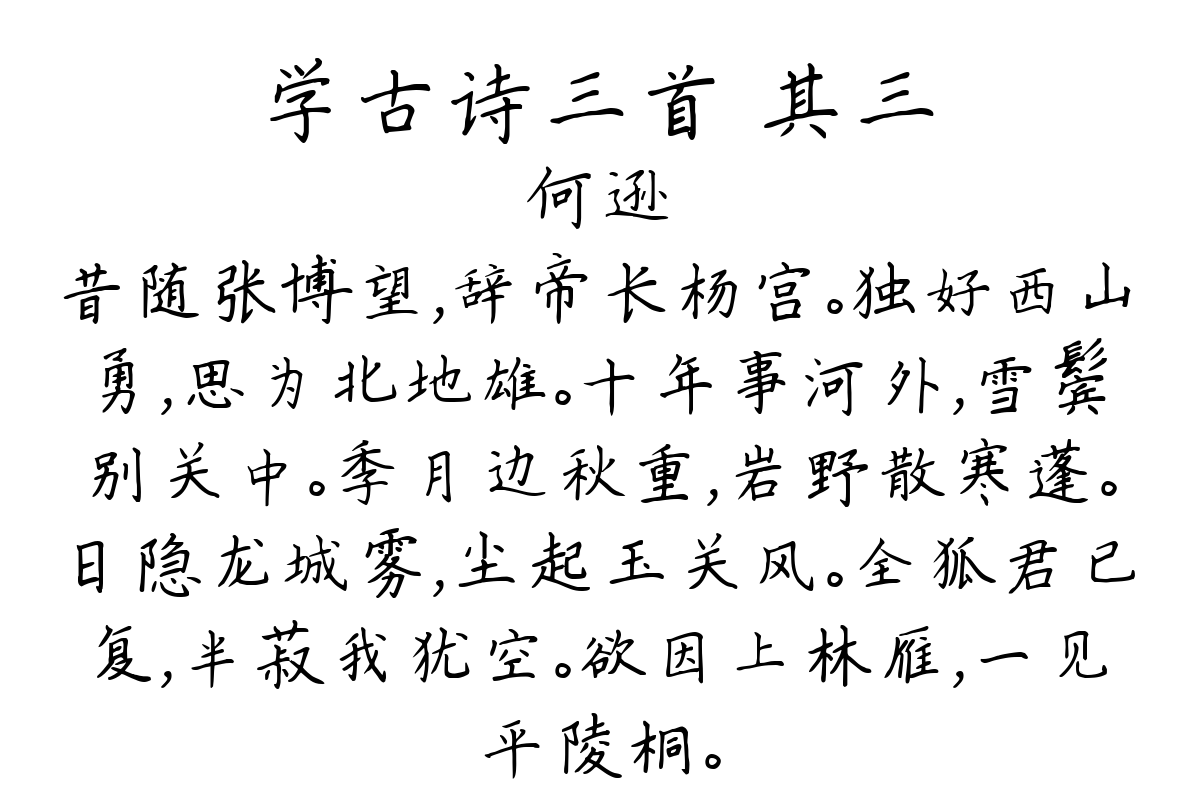 学古诗三首 其三
何逊
昔随张博望,辞帝长杨宫。独好西山
勇,思为北地雄。十年事河外,雪鬓
别关中。季月边秋重,岩野散寒蓬。
日隐龙城雾,尘起玉关风。全狐君已
复,半菽我犹空。欲因上林雁,一见
平陵桐。